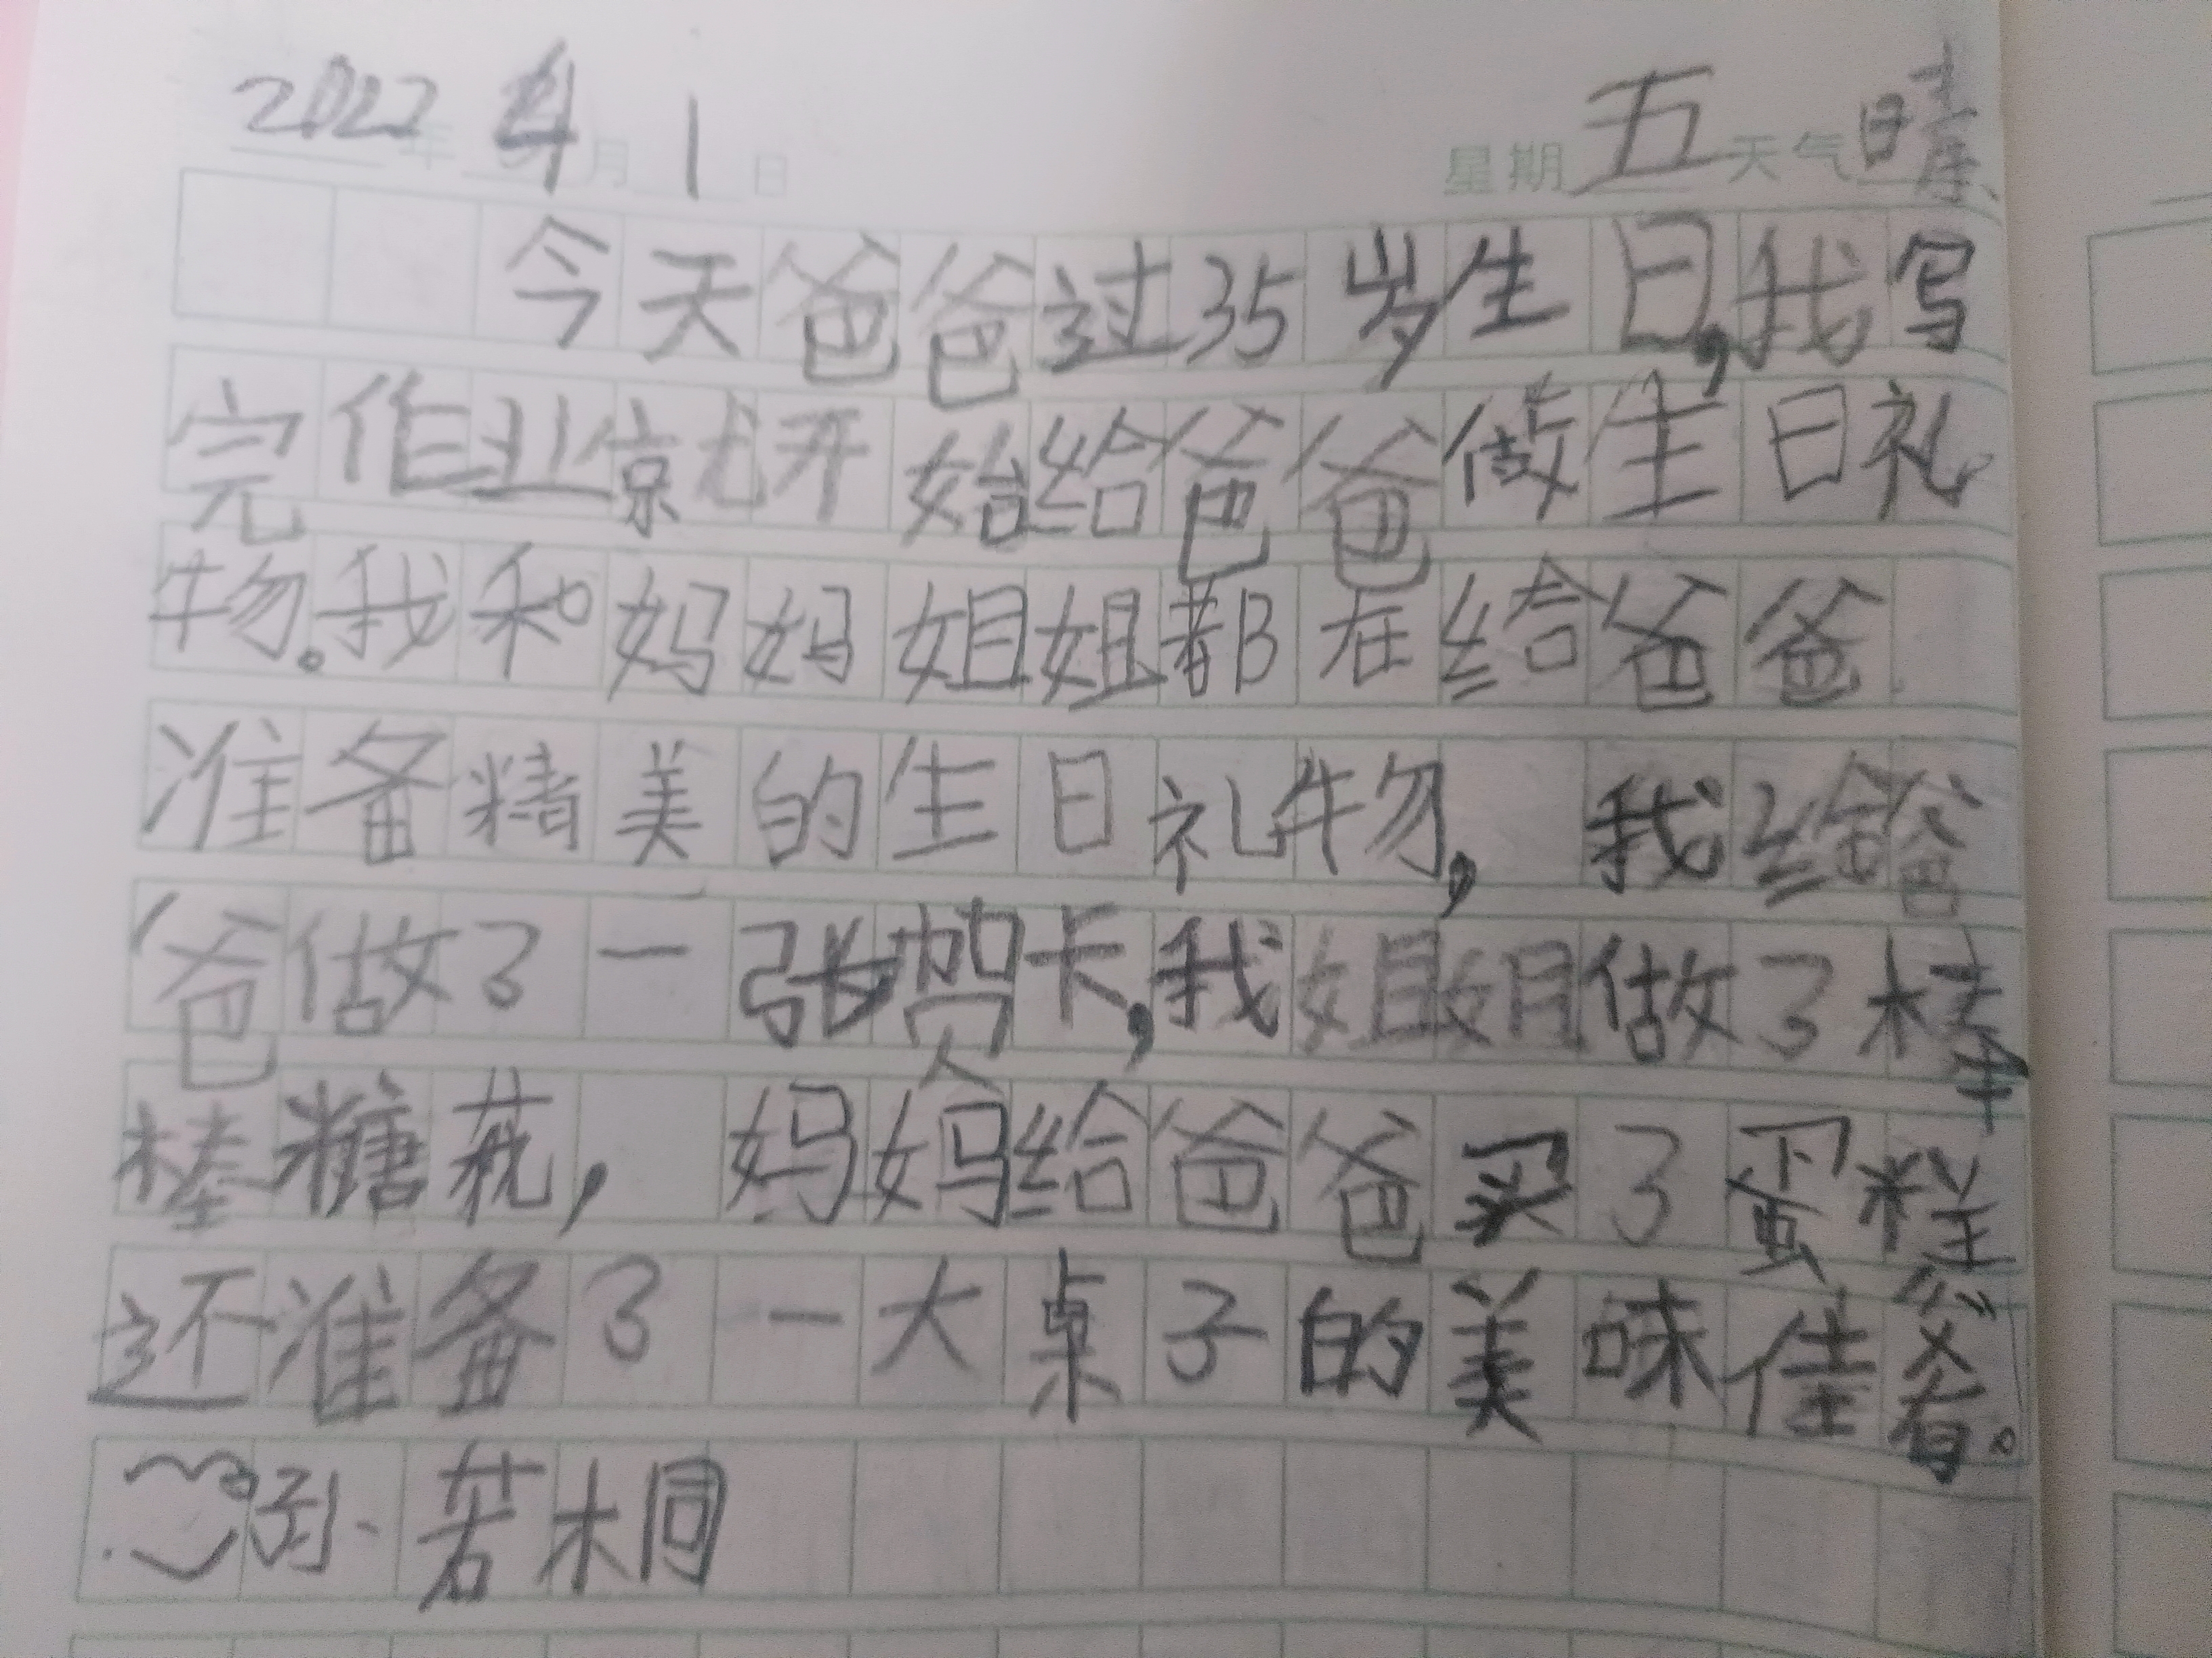 2022年4月1日 星期五天气晴
今天爸爸过35岁生日,我写
完作业就开始给爸爸做生日礼
物。我和妈妈姐姐都在给爸爸
准备精美的生日礼物,我给爸
爸做了一张贺卡,我姐姐做了棒
棒糖花,妈妈给爸爸买了蛋糕
还准备了一大桌子的美味佳肴。
孙若桐